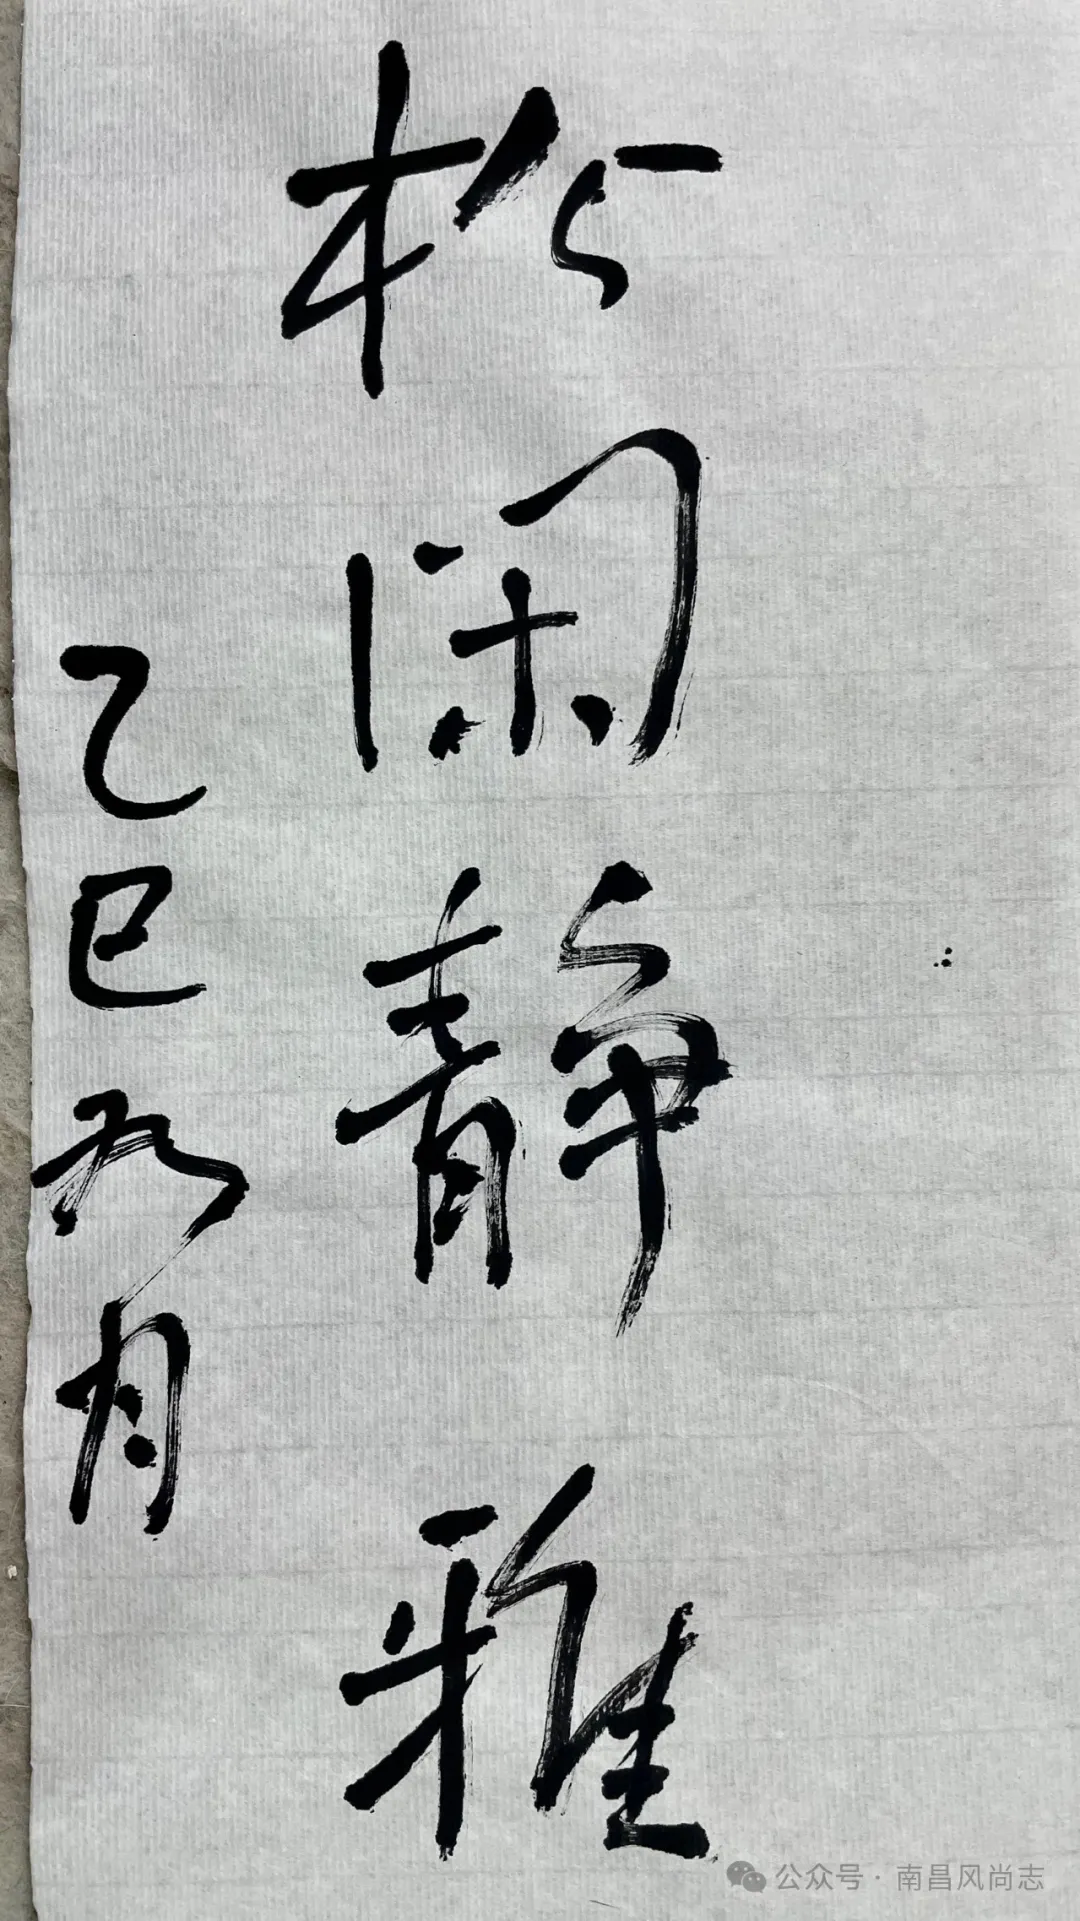 松闲静雅
乙巳九月
公众号·南昌风尚志